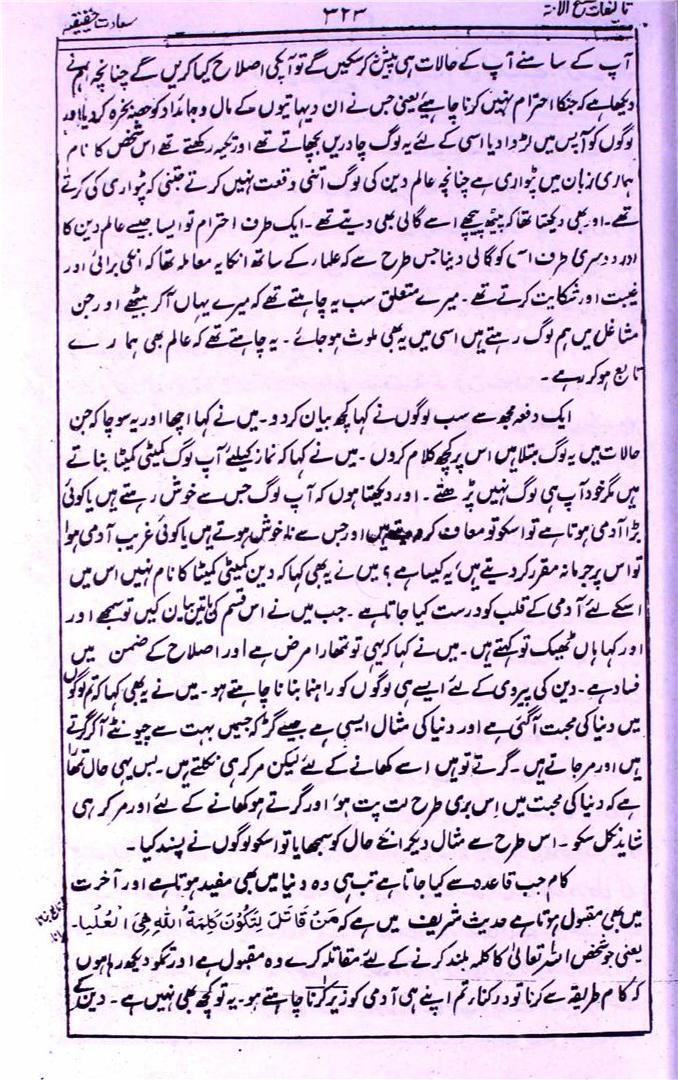 تالیفات مصلح الامۃ
۳۲۳
سعادت حقیقیہ
آپ کے سامنے آپ کے حالات ہی پیش کر سکیں گے تو آپکی اصلاح کیا کریں گے چنانچہ ہم نے
دیکھا ہے کہ جنکا احترام نہیں کرنا چاہیئے یعنی جس نے ان دیہاتیوں کے مال و جائداد کو حصہ بخرہ کردیا اور
لوگوں کو آپس میں لڑوا دیا اسی کے لئے یہ لوگ چادریں بچھاتے تھے اور تکیہ رکھتے تھے اس شخص کا نام
ہماری زبان میں پٹواری ہے چنانچہ عالم دین کی لوگ اتنی وقعت نہیں کرتے جتنی کہ پٹواری کی کرتے
تھے۔ اور یہ بھی دیکھتا تھا کہ پیٹھ پیچھے اسے گالی بھی دیتے تھے۔ ایک طرف احترام تو ایسا جیسے عالم دین کا
اور دوسری طرف اس کو گالی دینا جس طرح سے کہ علماء کے ساتھ انکا یہ معاملہ تھا کہ انکی برائی اور
غیبت اور شکایت کرتے تھے۔ میرے متعلق سب یہ چاہتے تھے کہ میرے یہاں آکر بیٹھے اور جن
مشاغل میں ہم لوگ رہتے ہیں اسی میں یہ بھی ملوث ہو جائے۔ یہ چاہتے تھے کہ عالم بھی ہمارے
تابع ہو کر رہے۔
ایک دفعہ مجھ سے سب لوگوں نے کہا کچھ بیان کردو۔ میں نے کہا اچھا اور یہ سوچا کہ جن
حالات میں یہ لوگ مبتلا ہیں اس پر کچھ کلام کروں۔ میں نے کہا کہ نماز کیلئے آپ لوگ کمیٹی کمیٹا بناتے
ہیں مگر خود آپ ہی لوگ نہیں پڑھتے۔ اور دیکھتا ہوں کہ آپ لوگ جس سے خوش رہتے ہیں یا کوئی
بڑا آدمی ہوتا ہے تو اسکو تو معاف کر دیتے ہیں اور جس سے ناخوش ہوتے ہیں یا کوئی غریب آدمی ہوا
تو اس پر جرمانہ مقرر کر دیتے ہیں یہ کیسا ہے؟ میں نے یہ بھی کہا کہ دین کمیٹی کمیٹا کا نام نہیں اس میں
اسکے لئے آدمی کے قلب کو درست کیا جاتا ہے۔ جب میں نے اس قسم کی باتیں بیان کیں تو سمجھے اور
اور کہا ہاں ٹھیک تو کہتے ہیں۔ میں نے کہا کہ یہی تو تمھارا مرض ہے اور اصلاح کے ضمن میں
فساد ہے۔ دین کی پیروی کے لئے ایسے ہی لوگوں کو راہنما بنانا چاہتے ہو۔ میں نے یہ بھی کہا کہ تم لوگوں
میں دنیا کی محبت آگئی ہے اور دنیا کی مثال ایسی ہے جیسے گڑ کہ جسمیں بہت سے چیونٹے آکر گرتے
ہیں اور مر جاتے ہیں۔ گرتے تو ہیں اسے کھانے کے لئے لیکن مر کر ہی نکلتے ہیں۔ بس یہی حال تمھارا
ہے کہ دنیا کی محبت میں اس بری طرح لت پت ہو اور گرتے ہو کھانے کے لئے اور مر کر ہی
شاید نکل سکو۔ اس طرح سے مثال دیکر انکے حال کو سمجھایا تو اسکو لوگوں نے پسند کیا۔
کام جب قاعدہ سے کیا جاتا ہے تب ہی وہ دنیا میں بھی مفید ہوتا ہے اور آخرت
میں بھی مقبول ہوتا ہے حدیث شریف میں ہے کہ مَنْ قَاتَلَ لِتَكُوْنَ كَلِمَةُ اللّٰهِ هِىَ الْعُلْيَا۔
یعنی جو شخص اللہ تعالیٰ کا کلمہ بلند کرنے کے لئے مقاتلہ کرے وہ مقبول ہے اور تمکو دیکھ رہا ہوں
کہ کام طریقہ سے کرنا تو درکنار، تم اپنے ہی آدمی کو زیر کرنا چاہتے ہو۔ یہ تو کچھ بھی نہیں ہے۔ دین کے